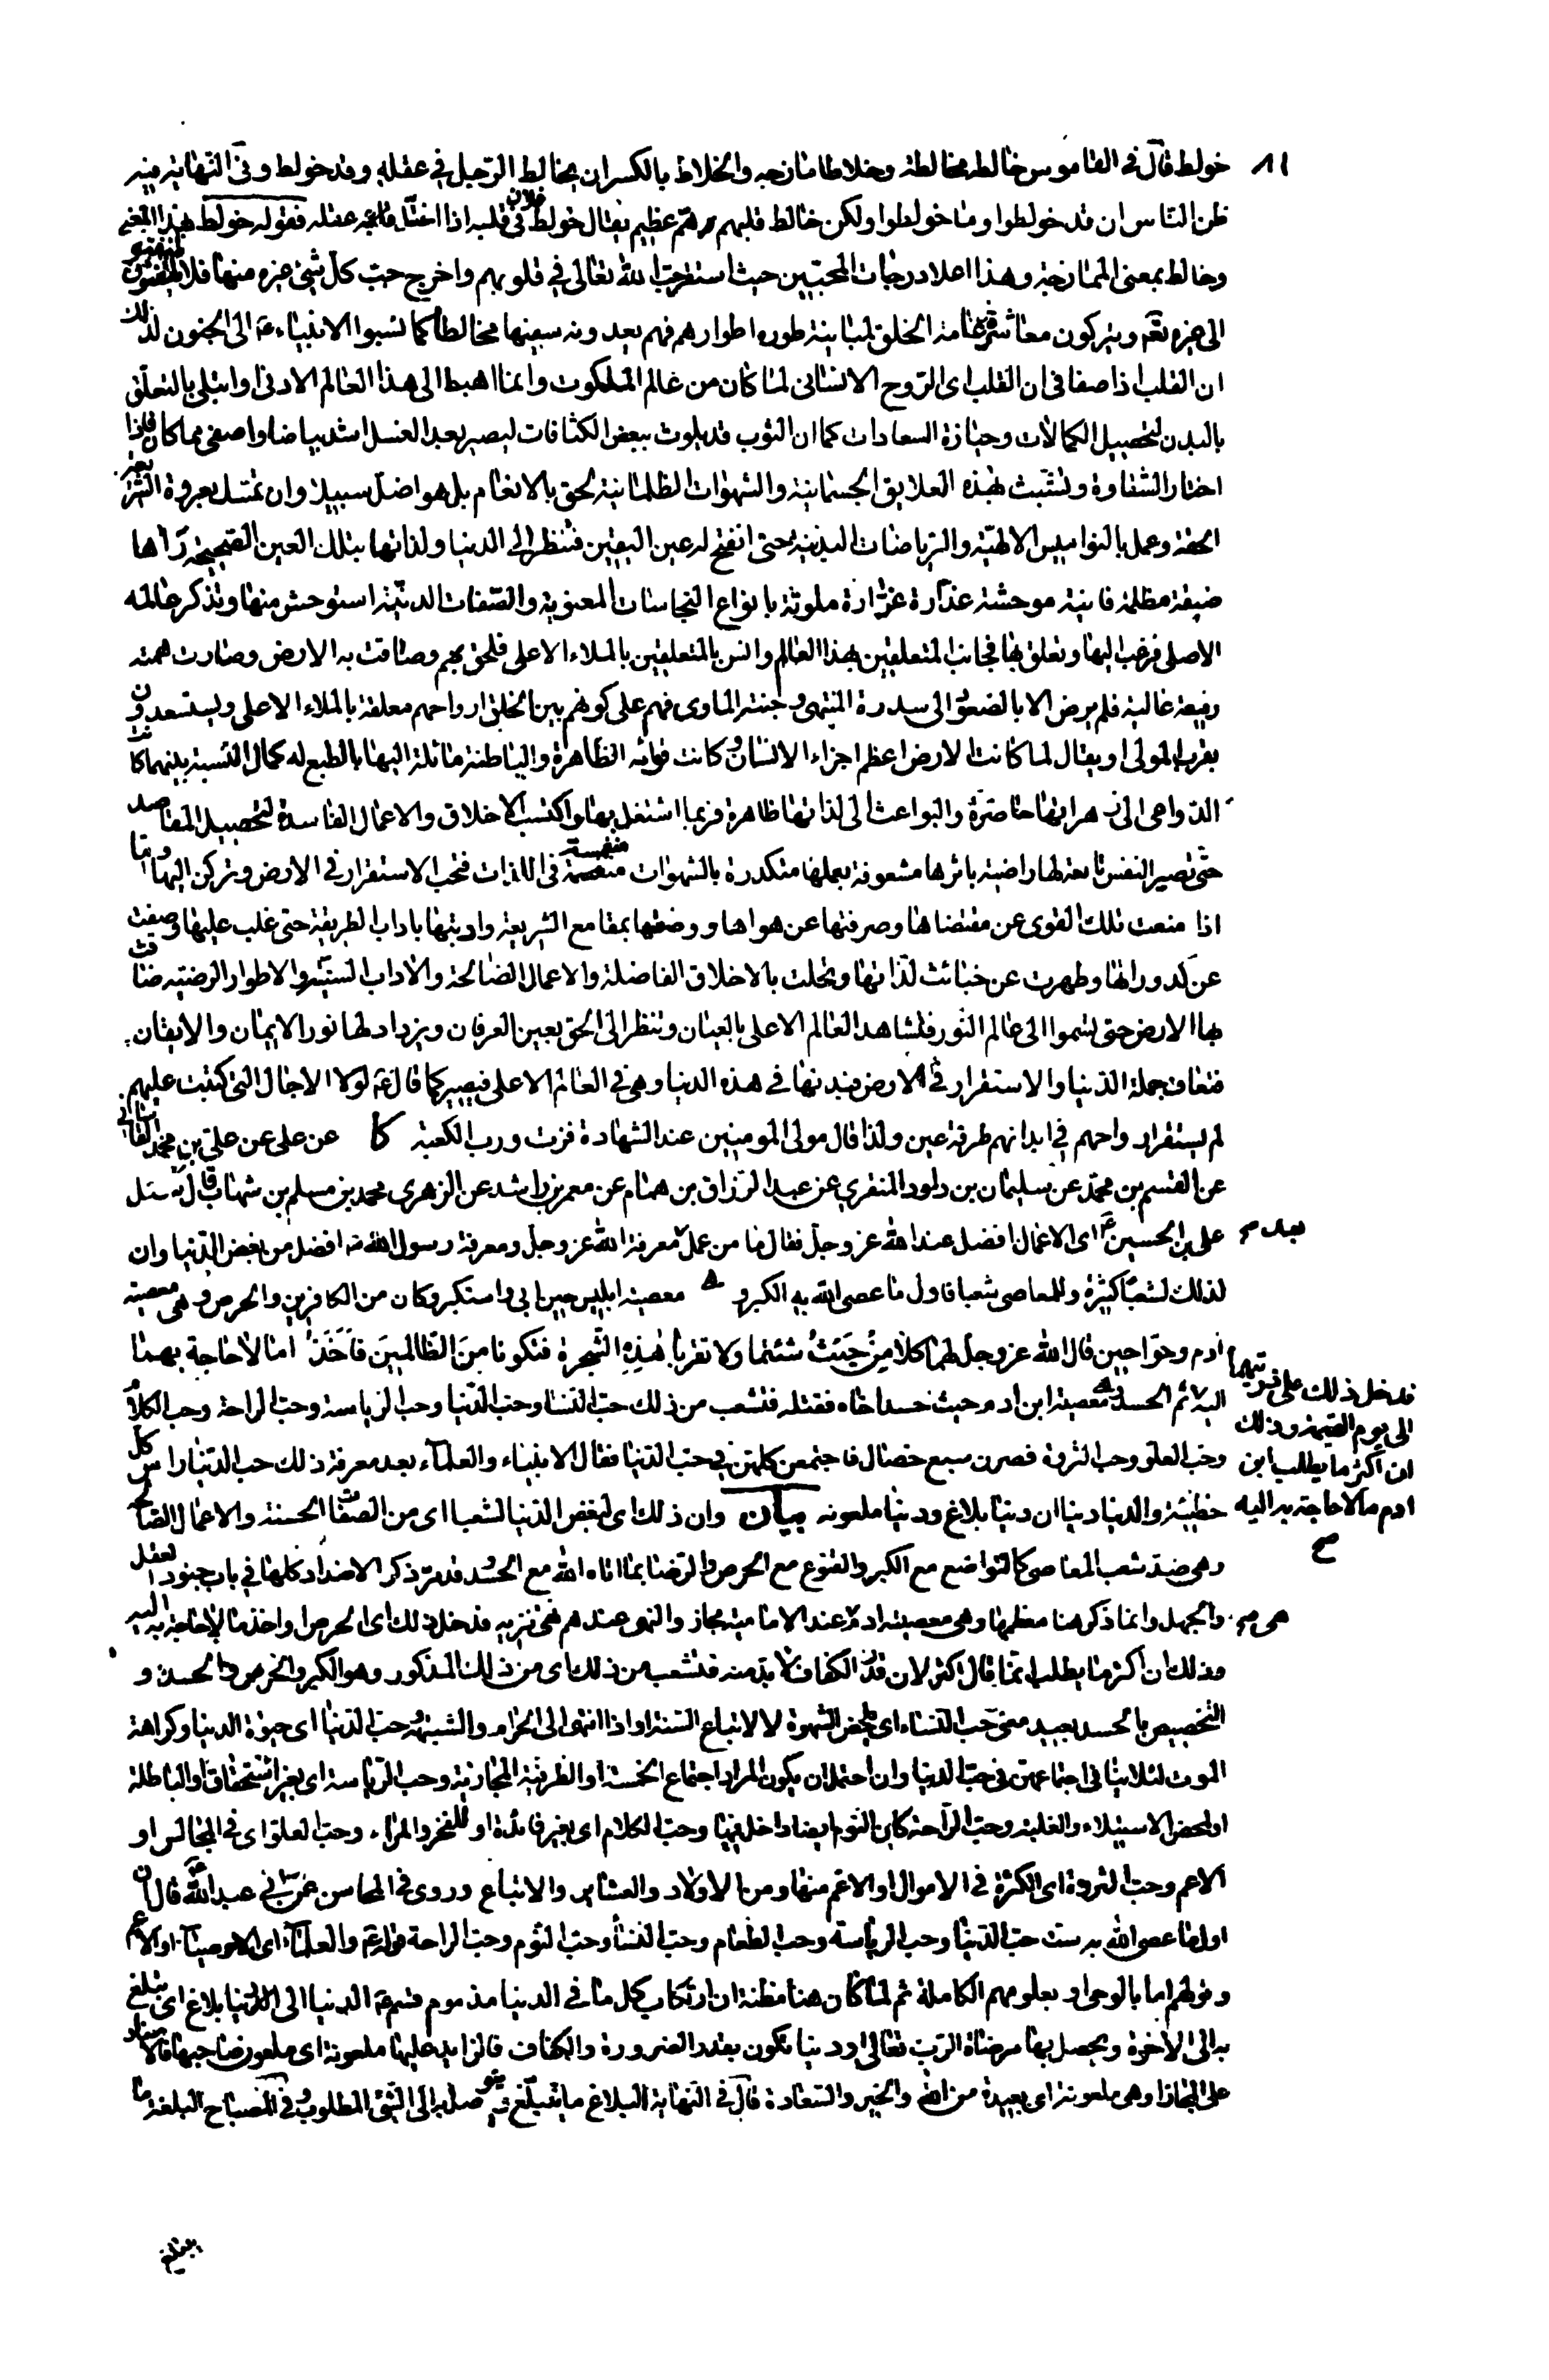 ٨١
خولط قال في القاموس خالطه مخالطة وخلاطا مازجه والخلاط بالكسر ان يخالط الرّجل في عقله وقد خولط وفي النّهاية فيه
ظن النّاس ان قد خولطوا وما خولطوا ولكن خالط قلبهم همّ عظيم يقال خولط فلان في قلبه اذا اختلّ عقله فقوله خولط بهذا المعنى
وخالط بمعنى الممازجة وهذا اعلا درجات المحبّين حيث استقر حبّ الله تعالى في قلوبهم واخرج حبّ كلّ شيئ غيره منها فلا يلتفتون
الى غيره تعه ويتركون معاشرة عامة الخلق لمباينة طوره اطوارهم فهم يعدونه سفيها مخالطا كما نسبوا الانبياء ع الى الجنون لذلك
ان القلب اذا صفا في ان القلب اى الرّوح الانسانى لمّا كان من عالم الملكوت وانما اهبط الى هذا العالم الادنى وابتلى بالتعلّق
بالبدن لتحصيل الكمالات وحيازة السعادات كما ان الثوب قد يلوث ببعض الكثافات ليصير بعد الغسل اشد بياضا واصفى مما كان فاذا
اختار الشقاوة وتشبّث بهذه العلايق الجسمانية والشهوات الظلمانية لحق بالانعام بل هو اضلّ سبيلا وان تمسّك بعروة الشريعة
الحقة وعمل بالنواميس الالهيّة والرّياضات البدنيه حتى انفتح له عين اليقين فنظر الى الدنيا ولذاتها بتلك العين الصحيحة رآها
ضيقة مظلمة فانية موحشة غدّارة غرّارة ملوثة بانواع النجاسات المعنوية والصّفات الدنيّة استوحش منها وتذكر عالمه
الاصلى فرغب اليها وتعلق بها فجانب المتعلقين بهذا العالم وانس بالمتعلقين بالملاء الاعلى فلحق بهم وضاقت به الارض وصارت همته
رفيعة عالية فلم يرض الا بالصعود الى سدرة المنتهى وجنة الماوى فهم على كونهم بين الخلق ارواحهم معلقة بالملاء الاعلى ويستسعدون
بقرب المولى او يقال لما كانت الارض اعظم اجزاء الانسان وكانت قواه الظاهرة والباطنة مائلة اليها بالطبع له كمال النّسبة بينهما كانت
الدّواعى الى زهراتها حاضرة والبواعث الى لذاتها ظاهرة فربما اشتغل بها واكتسب الاخلاق والاعمال الفاسدة لتحصيل المقاصد
حتّى تصير النفس تابعة لها راضية باثرها مشعوفة بعملها متكدرة بالشهوات منغمسة في اللذات فتحب الاستقرار في الارض وتركن اليها واما
اذا منعت تلك القوى عن مقتضاها وصرفتها عن هواها ووضعها بمقامع الشريعة وادبتها باداب الطريقة حتى غلب عليها وصفت
عن كدوراتها وطهرت عن خبائث لذّاتها وتحلت بالاخلاق الفاضلة والاعمال الصّالحة والاداب السنيّة والاطوار الرضيّه ضاقت
بها الارض حتى تسموا الى عالم النّور فتشاهد العالم الاعلى بالعيان وتنظر الى الحق بعين العرفان ويزداد لها نور الايمان والايقان
فتعاف جملة الدّنيا والاستقرار في الارض فبدنها في هذه الدنيا وهي في العالم الاعلى فيصير كما قال ع لولا الاجال التي كتبت عليهم
لم يستقر ارواحهم في ابدانهم طرفة عين ولذا قال مولى المومنين عند الشهادة فزت ورب الكعبة كا عن علي عن علي بن محمد القاساني
عن القسم بن محمد عن سليمان بن داود المنقري عن عبد الرّزاق بن همام عن معمر بن راشد عن الزهري محمد بن مسلم بن شهاب قال سئل
علي بن الحسين ع اي الاعمال افضل عند الله عز وجلّ فقال ما من عمل بعد معرفة الله عز وجل ومعرفة رسول الله ص افضل من بغض الدّنيا وان
لذلك لشعبا كثيرة وللمعاصي شعبا فاول ما عصي الله به الكبر و هي معصية ابليس حين ابى واستكبر وكان من الكافرين والحرص وهي معصية
ادم وحوّا حين قال الله عز وجل لهما كلا من حيث شئتما ولا تقربا هذه الشجرة فتكونا من الظالمين فاخذا ما لا حاجة بهما
اليه ثم الحسد وهي معصية ابن ادم حيث حسد اخاه فقتله فتشعب من ذلك حبّ النّساء وحبّ الدّنيا وحبّ الرياسة وحبّ الراحة وحب الكلام
وحبّ العلوّ وحب الثروة فصرن سبع خصال فاجتمعن كلهن في حبّ الدّنيا فقال الانبياء والعلماء بعد معرفة ذلك حب الدّنيا راس كلّ
خطيئة والدنيا دنياان دنيا بلاغ ودنيا ملعونه بيان وان ذلك اى لبغض الدّنيا لشعبا اى من الصفات الحسنة والاعمال الصّالحة
وهي ضد شعب المعاصى كالتواضع مع الكبر والقنوع مع الحرص والرّضا بما اتاه الله مع الحسد قد مرّ ذكر الاضداد كلها في باب جنود العقل
والجهل وانما ذكر هنا معظمها وهي معصية ادم عند الامامية مجاز والنهى عندهم نهى تنزيه فدخل ذلك اى الحرص او اخذ ما لا حاجة به اليه
وذلك ان اكثر ما يطلب انما قال اكثر لان قدر الكفاف لا بدّ منه فتشعب من ذلك اى من ذلك المذكور وهو الكبر والحرص والحسد و
التّخصيص بالحسد بعيد معنى حبّ النّساء اى لمحض الشهوة لا لاتباع السّنة او اذا انتهى الى الحرام والشبهة وحبّ الدّنيا اى حيوة الدنيا وكراهة
الموت لئلا ينافى اجتماعهن في حبّ الدنيا وان احتمل ان يكون المراد اجتماع الخمسة او الظرفية المجازية وحب الرياسة اى بغير استحقاق او الباطلة
او لمحض الاستيلاء والغلبة وحبّ الرّاحة كان النّوم ايضا داخل فيها وحبّ الكلام اى بغير فائدة او للفخر والمراء وحبّ العلوّ اى في المجالس او
الاعم وحبّ الثروة اى الكثرة في الاموال او الاعّم منها ومن الاولاد والعشاير والاتباع وروى في المحاسن عن ابي عبد الله ع قال ان
اول ما عصى الله به ست حبّ الدّنيا وحب الرياسة وحب الطعام وحبّ النّساء وحبّ النّوم وحبّ الراحة قوله ع والعلماء اى الاوصياء او الاعم
وقولهم اما بالوحى او بعلومهم الكاملة ثم لمّا كان هنا مظنة ان ارتكاب كل ما في الدنيا مذموم قسم ع الدنيا الى الدّنيا بلاغ اى يبلغ
به الى الآخرة ويحصل بها مرضاة الرّب تعالى او دنيا تكون بقدر الضرورة والكفاف فالزايد عليها ملعونة اى ملعون صاحبها فالاسناد
على المجاز او هي ملعونة اى بعيدة من الله والخير والسّعادة قال في النّهاية البلاغ ما يتبلّغ ويتوصل به الى الشّئ المطلوب وفي المصباح البلغة ما
بعد صح
فدخل ذلك على ذريتهما
الى يوم القيمة وذلك
ان اكثر ما يطلب ابن
ادم ما لا حاجة به اليه
صح
هى صح